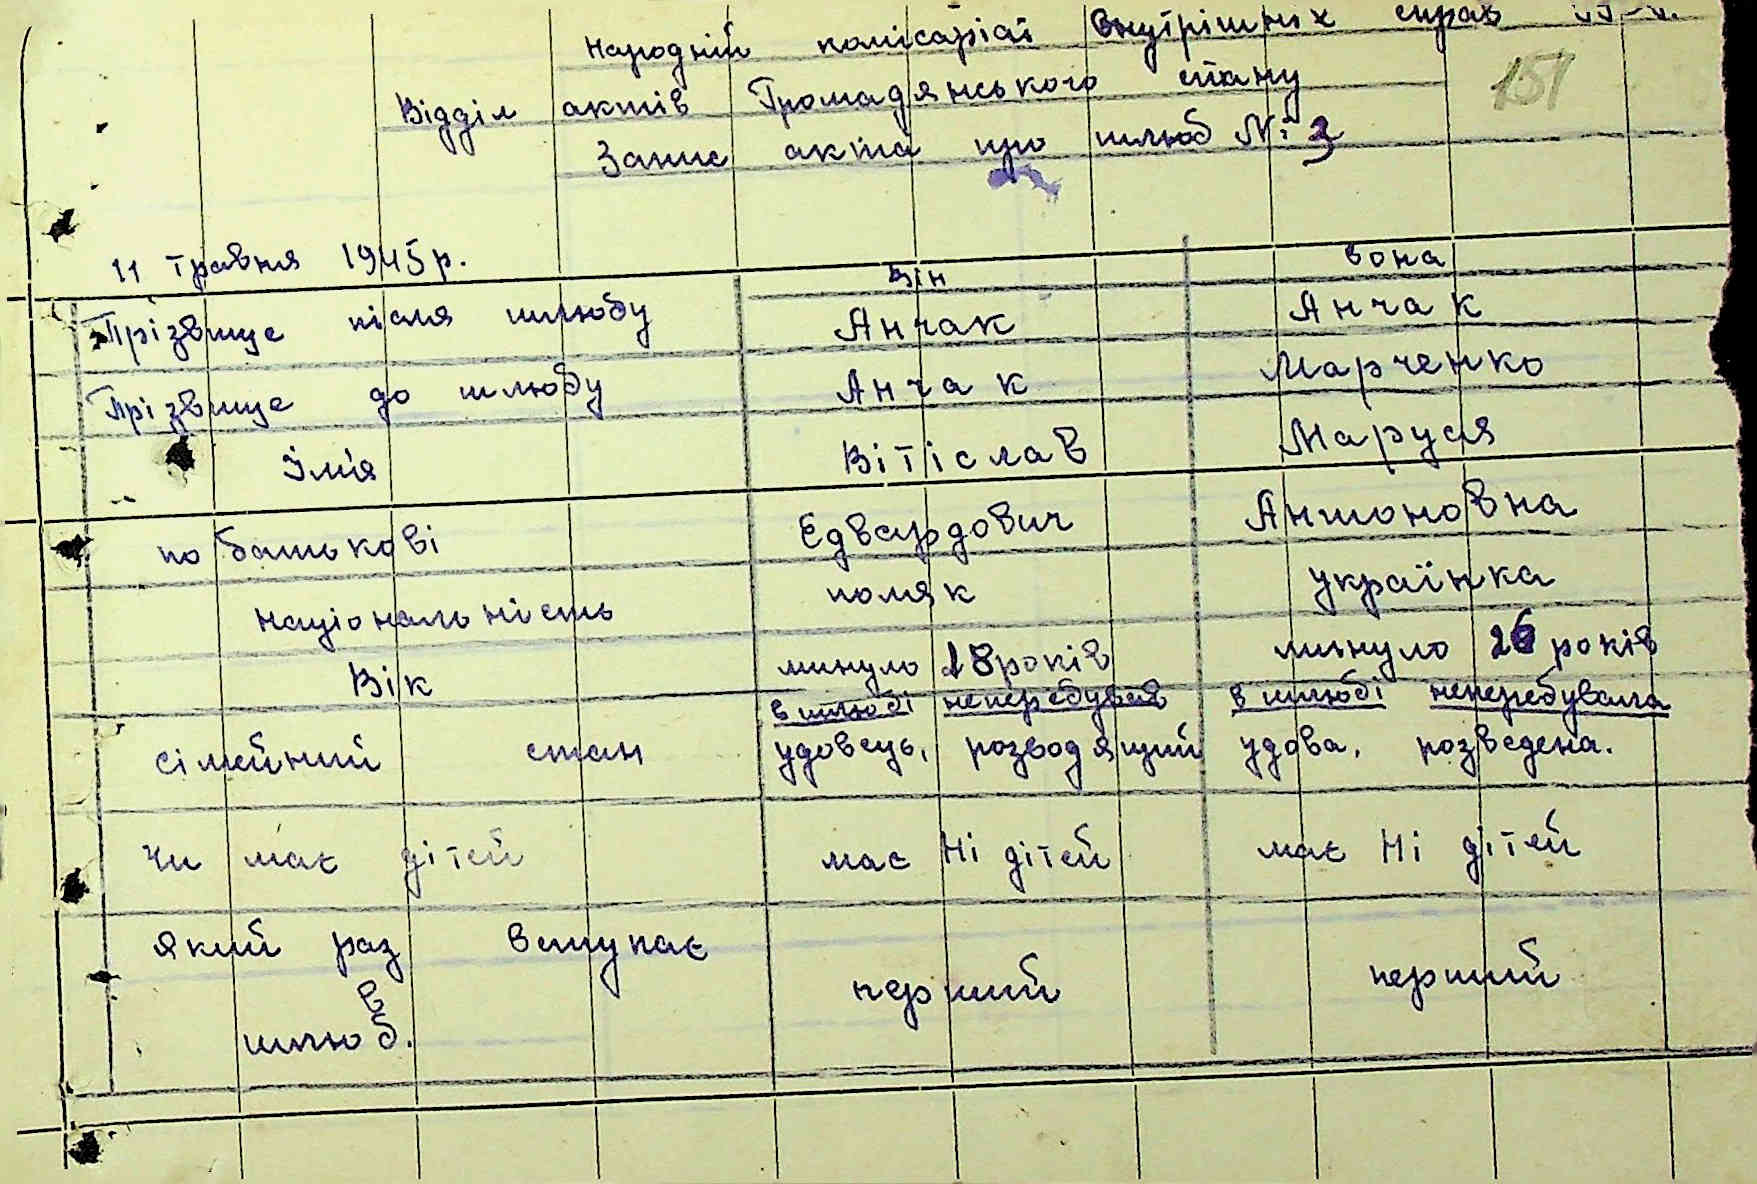 Народній комісаріат внутрішніх справ
151
Відділ актів Громадянського стану
Запис акта про шлюб № 3
11 травня 1945 р.
Він вона
Прізвище після шлюбу Анчак Анчак
Прізвище до шлюбу Анчак Марченко
Імя Вітіслав Маруся
по батькові Едвардович Антоновна
Національність поляк українка
Вік минуло 18 років минуло 26 років
в шлюбі неперебував в шлюбі неперебувала
сімейний стан удовець, розводящий удова, розведена.
Чи має дітей має Ні дітей має Ні дітей
який раз вступає перший перший
в
шлюб.